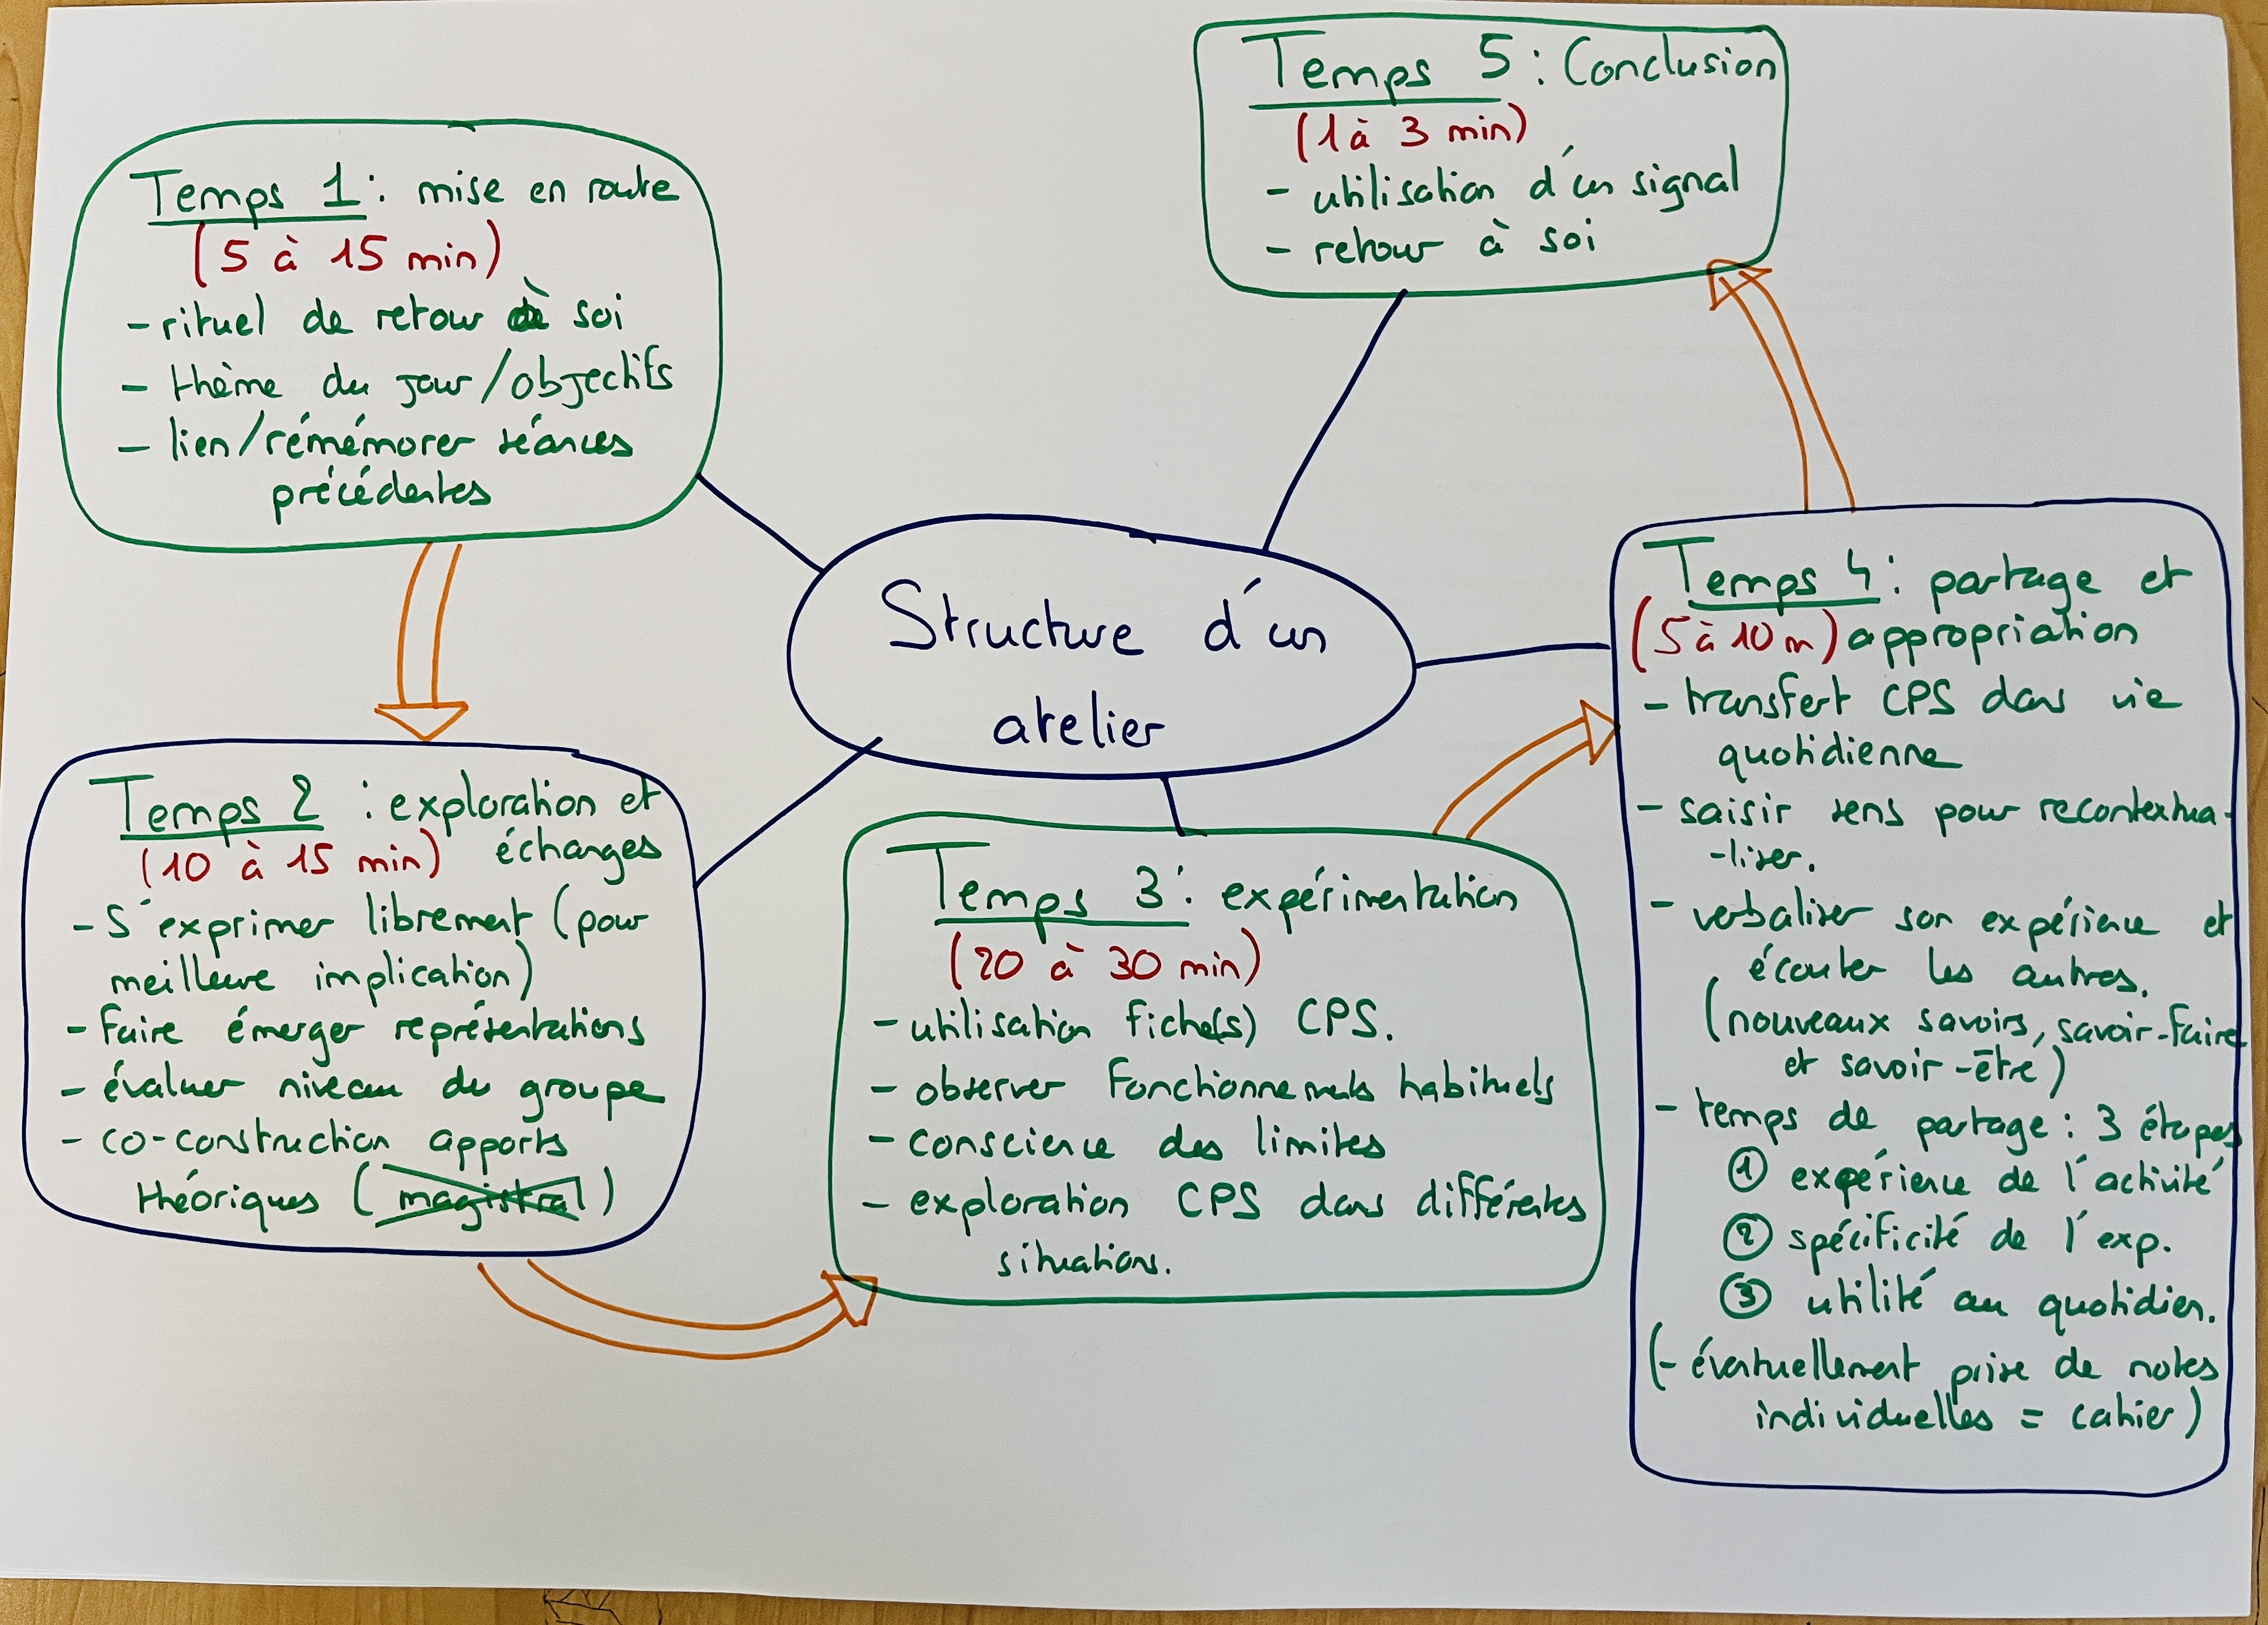 Structure d'un
atelier
Temps 1 : mise en route
(5 à 15 min)
- rituel de retour à soi
- thème du jour/objectifs
- lien/rémémorer séances
précédentes
Temps 2 : exploration et
échanges
(10 à 15 min)
- S'exprimer librement (pour
meilleure implication)
- faire émerger représentations
- évaluer niveau du groupe
- co-construction apports
théoriques (magistral)
Temps 3 : expérimentation
(20 à 30 min)
- utilisation fiche(s) CPS.
- observer fonctionnements habituels
- conscience des limites
- exploration CPS dans différentes
situations.
Temps 4 : partage et
(5 à 10 m) appropriation
- transfert CPS dans vie
quotidienne
- saisir sens pour recontextua-
-liser.
- verbaliser son expérience et
écouter les autres.
(nouveaux savoirs, savoir-faire
et savoir-être)
- temps de partage : 3 étapes
① expérience de l'activité
② spécificité de l'exp.
③ utilité au quotidien.
(- éventuellement prise de notes
individuelles = cahier)
Temps 5 : Conclusion
(1 à 3 min)
- utilisation d'un signal
- retour à soi